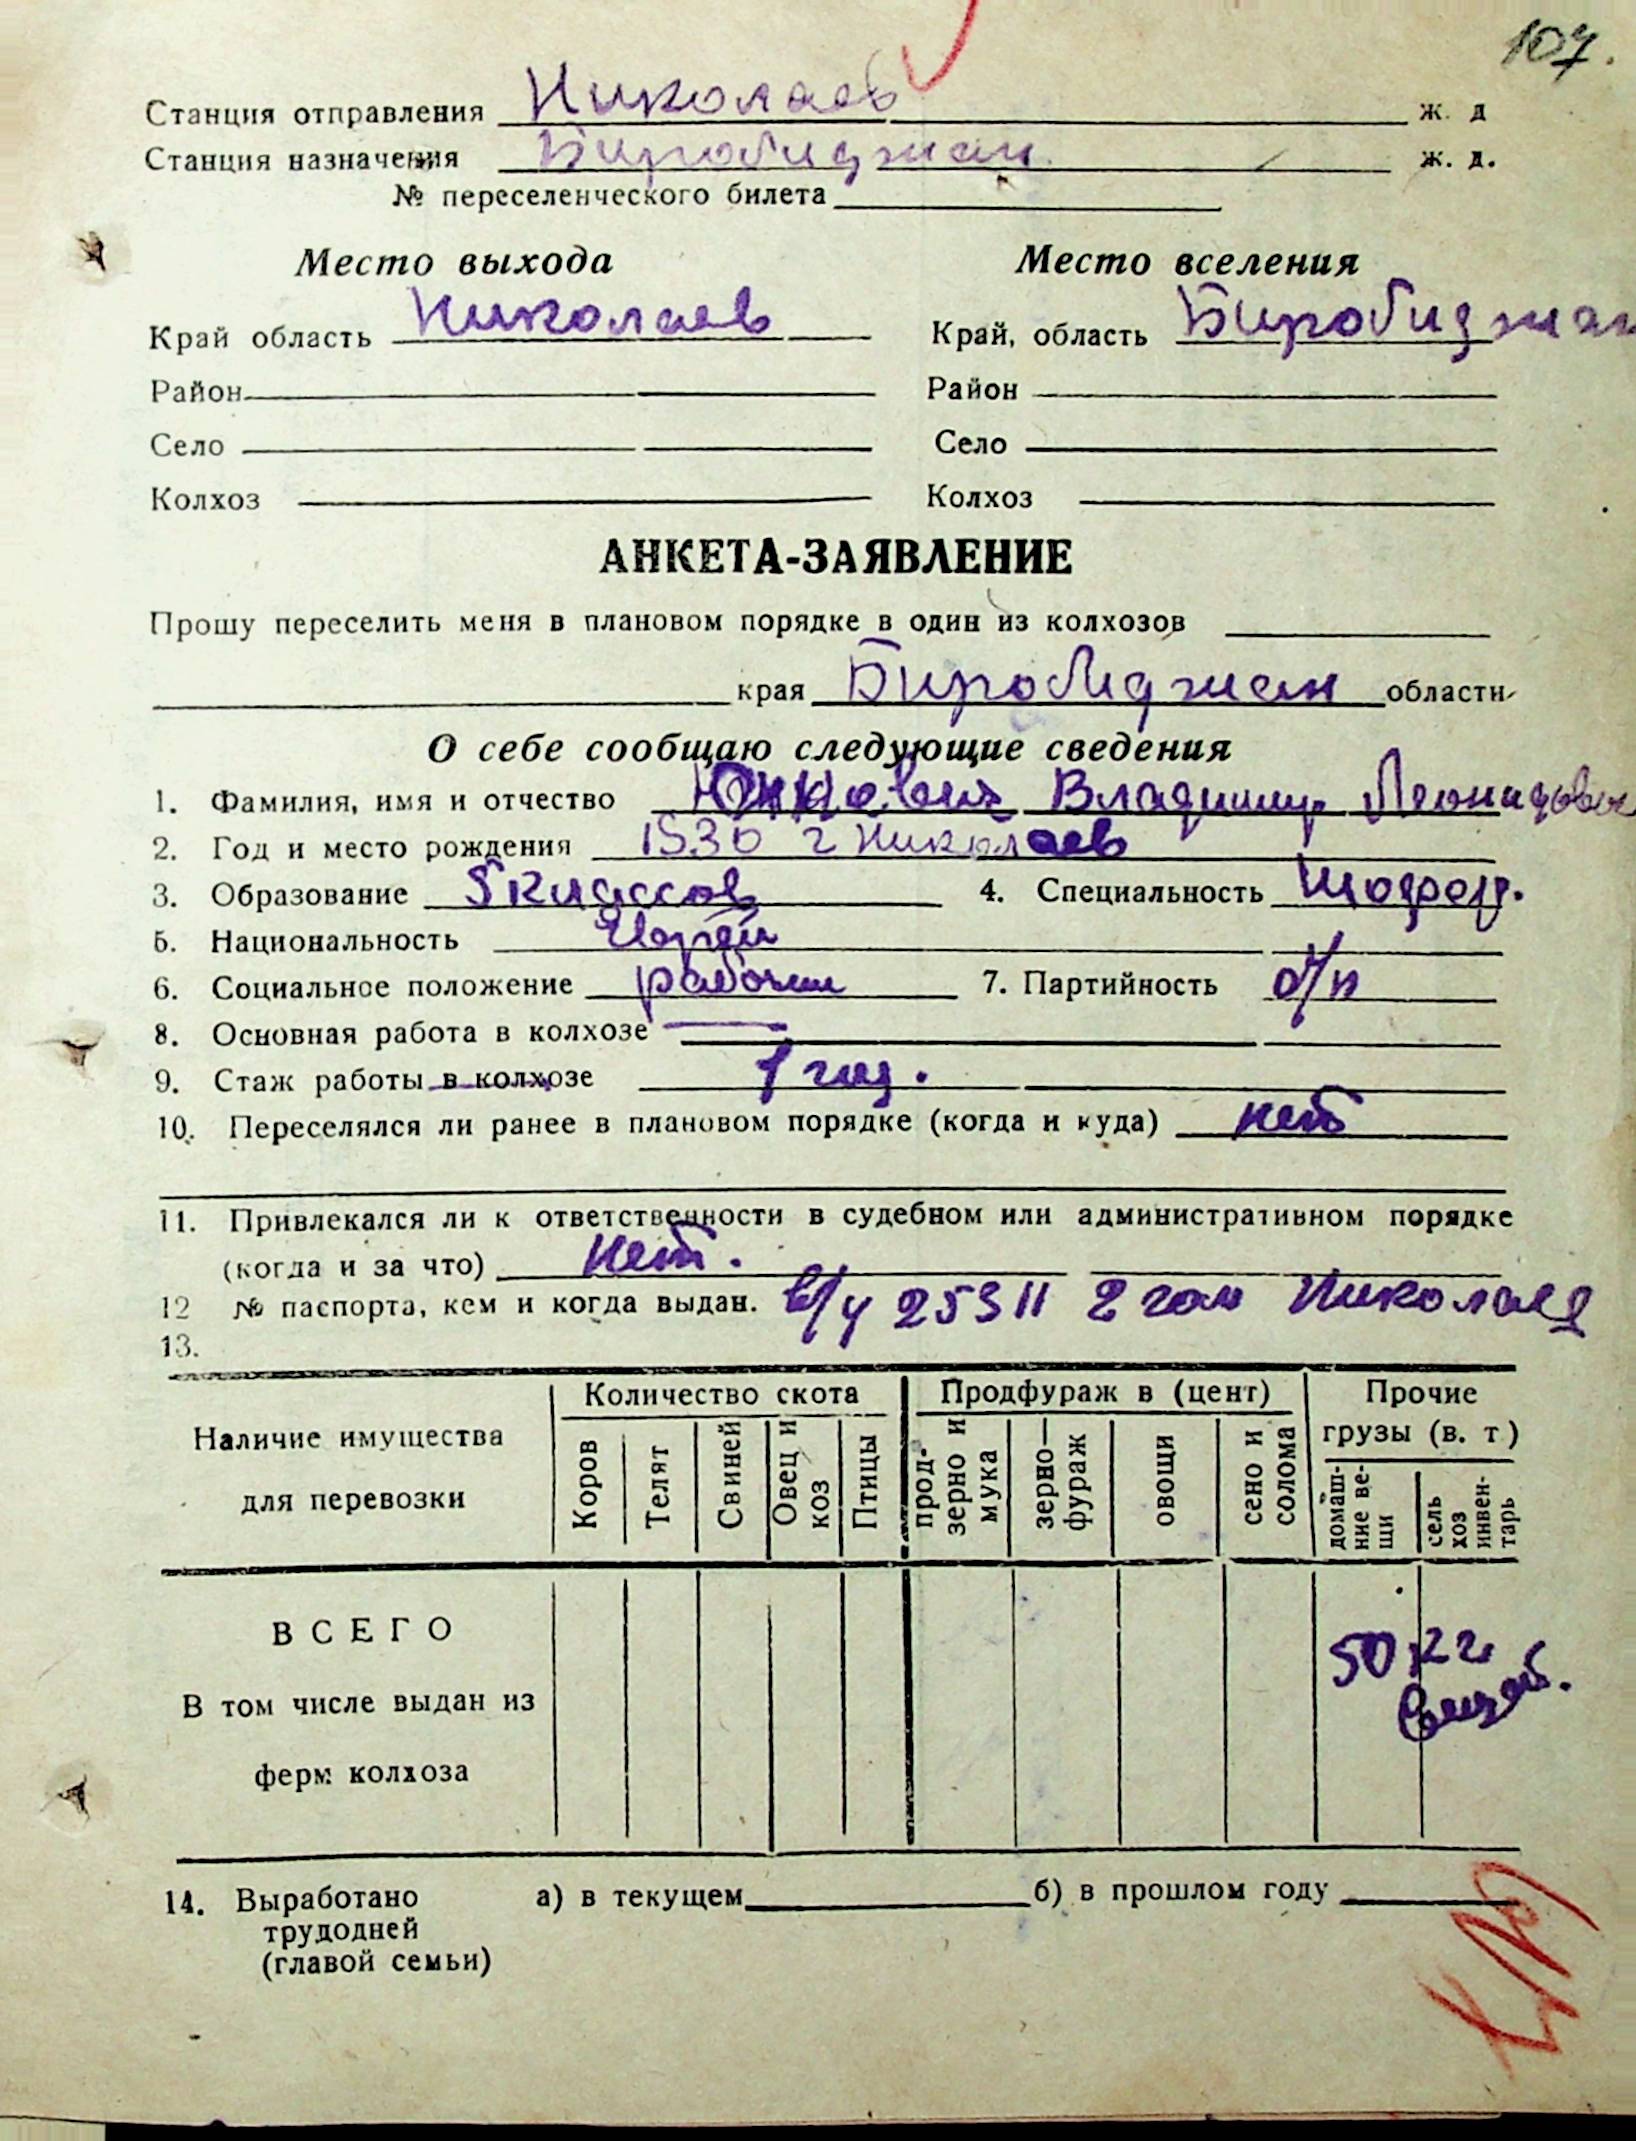 107.
Станция отправления Николаев ж. д
Станция назначения Биробиджан ж. д.
№ переселенческого билета
Место выхода Место вселения
Край область Николаев Край, область Биробиджан
Район Район
Село Село
Колхоз Колхоз
АНКЕТА-ЗАЯВЛЕНИЕ
Прошу переселить меня в плановом порядке в один из колхозов
края Биробиджан области
О себе сообщаю следующие сведения
1. Фамилия, имя и отчество Владимир Леонидович
2. Год и место рождения 1930 г Николаев
3. Образование 5 классов 4. Специальность Шофер.
5. Национальность Еврей
6. Социальное положение рабочий 7. Партийность б/п
8. Основная работа в колхозе —
9. Стаж работы в колхозе 1 год.
10. Переселялся ли ранее в плановом порядке (когда и куда) нет
11. Привлекался ли к ответственности в судебном или административном порядке
(когда и за что) нет.
12 № паспорта, кем и когда выдан. 25311 2 Николаев
13.
Наличие имущества для перевозки
Количество скота
Коров
Телят
Свиней
Овец и коз
Птицы
Продфураж в (цент)
прод-зерно и мука
зерно-фураж
овощи
сено и солома
Прочие грузы (в. т)
домаш-ние ве-щи
сель хоз инвен-тарь
ВСЕГО
50 кг
вещей.
В том числе выдан из
ферм колхоза
14. Выработано а) в текущем б) в прошлом году
трудодней
(главой семьи)